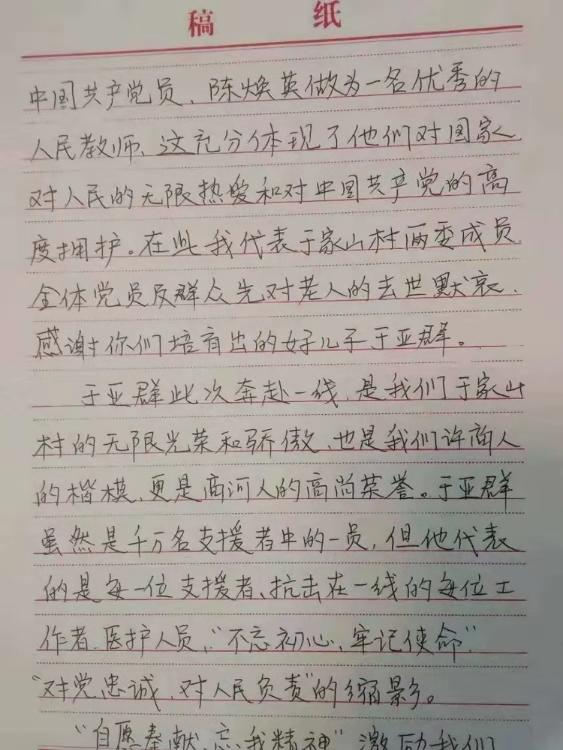 稿 纸
中国共产党员、陈焕英做为一名优秀的
人民教师、这充分体现了他们对国家
对人民的无限热爱和对中国共产党的高
度拥护。在此我代表于家山村两委成员
全体党员及群众先对老人的去世默哀、
感谢你们培育出的好儿子于亚群。
于亚群此次奔赴一线,是我们于家山
村的无限光荣和骄傲、也是我们许商人
的楷模、更是商河人的高尚荣誉。于亚群
虽然是千万名支援者中的一员,但他代表
的是每一位支援者、抗击在一线的每位工
作者、医护人员,"不忘初心、牢记使命"
"对党忠诚、对人民负责"的缩影。
"自愿奉献、忘我精神"激励我们